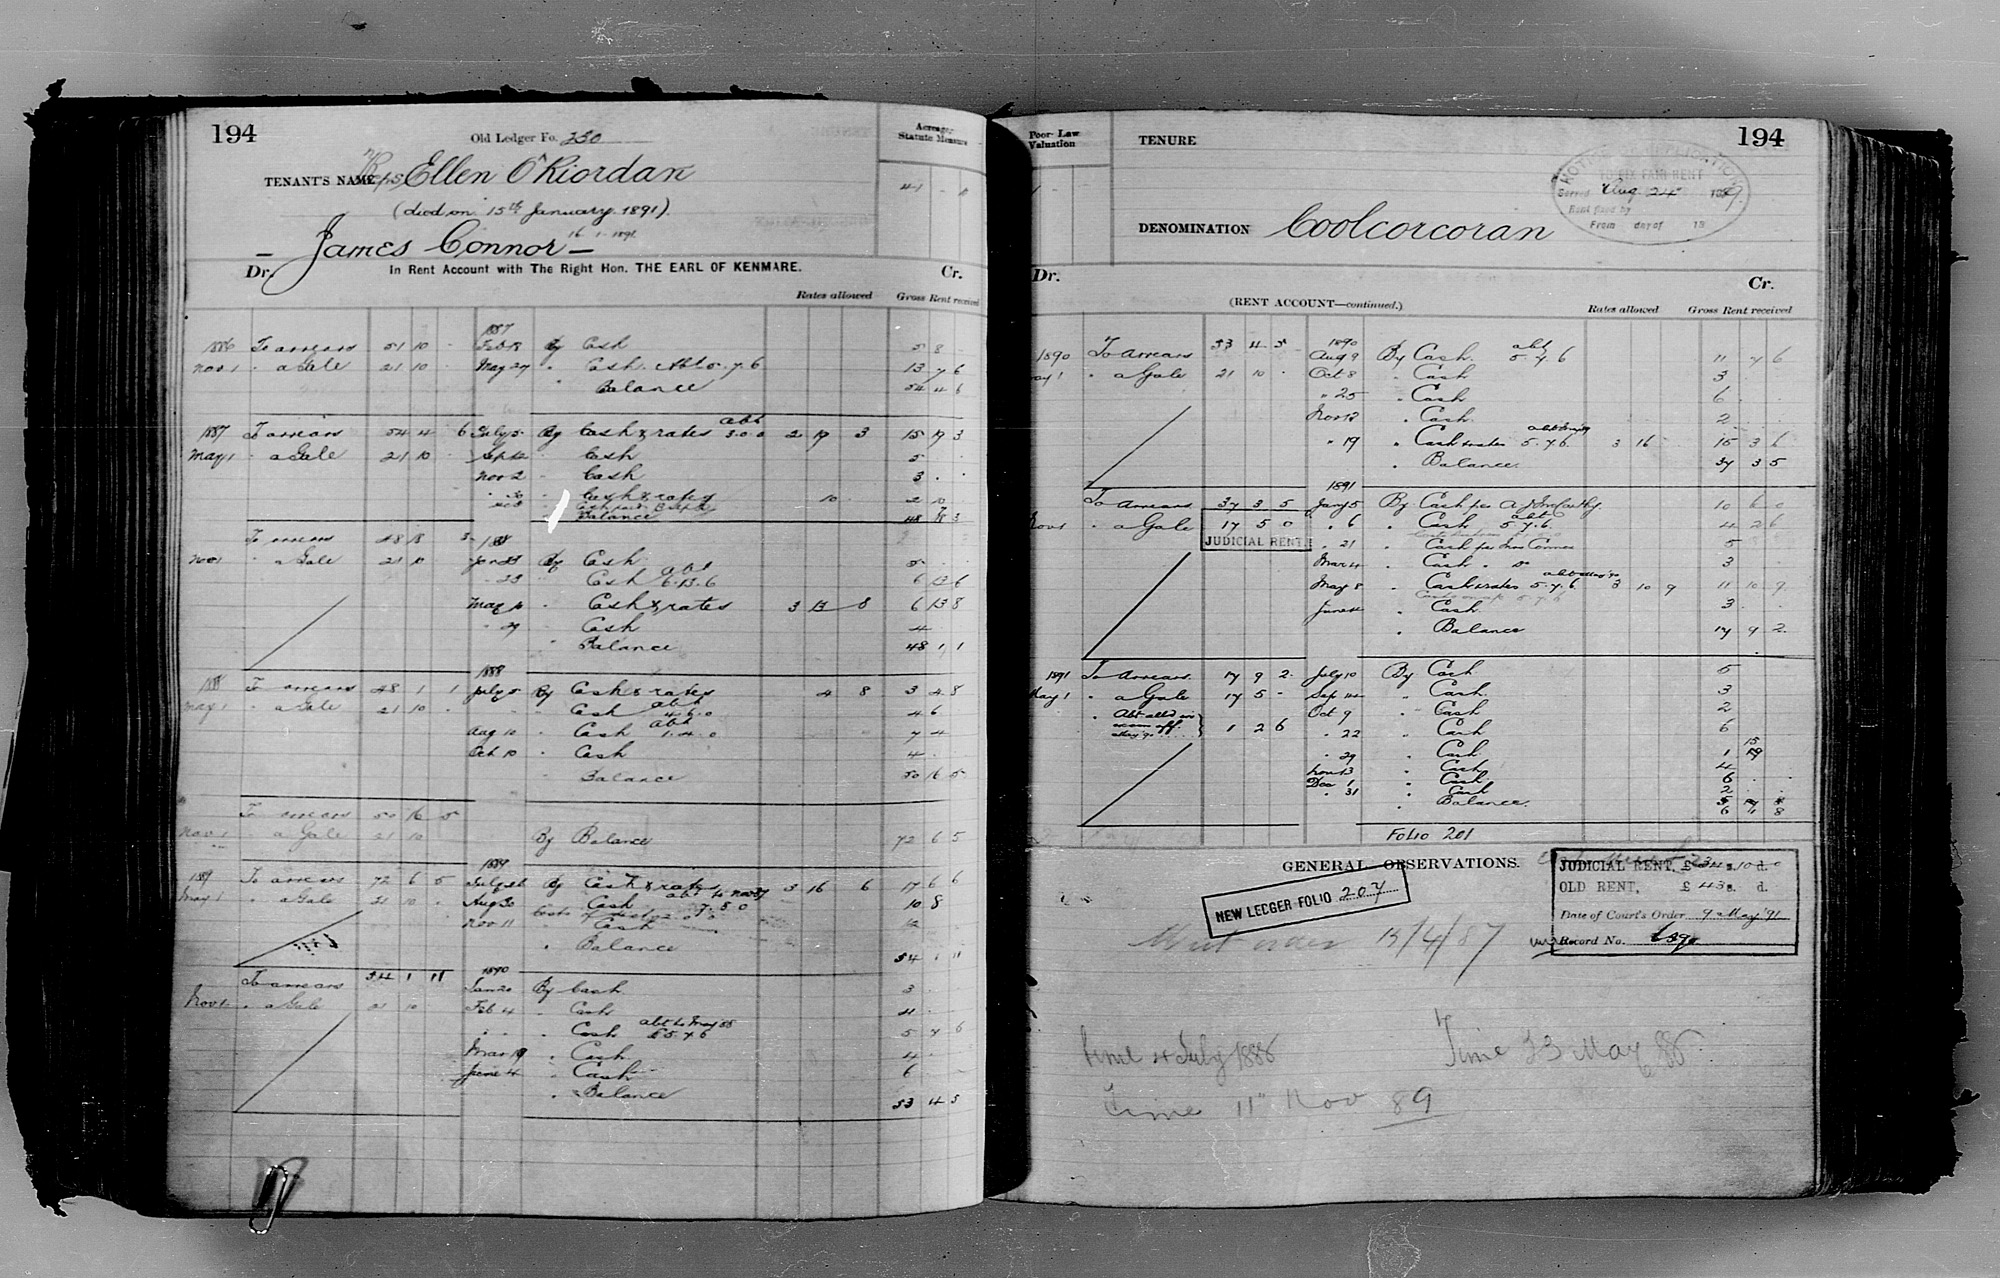 194
Old Ledger Fo. 230
Acreage
Statute Measure
TENANT'S NAME Reps Ellen O'Riordan
41 - -
(died on 15th January 1891)
James Connor 16 1 1891
Dr. In Rent Account with The Right Hon. THE EARL OF KENMARE. Cr.
Rates allowed Gross Rent received
1887
1886 To arrears 51 10 - Feb 8 By Cash 5 8 -
Nov 1 " a Gale 21 10 - May 27 " Cash Abt 5.7.6 13 7 6
" Balance 54 4 6
1887 To arrears 54 4 6 July 5 By Cash & rates abt 3.0.0 2 19 3 15 19 3
May 1 " a Gale 21 10 - Sept 12 " Cash 5 - -
Nov 2 " Cash 3 - -
" Cash & rates 10 - 2 10 -
Balance 48 8 3
To arrears 48 8 3 1888
Nov 1 " a Gale 21 10 - Jan 23 By Cash 5 - -
" 23 " Cash abt 6.13.6 6 13 6
May 10 " Cash & rates 3 13 8 6 13 8
" 29 " Cash 4 - -
" Balance 48 1 1
1888
1888 To arrears 48 1 1 July 5 By Cash & rates 4 8 3 4 8
May 1 " a Gale 21 10 - " Cash abt 4.6.0 4 6
Aug 10 " Cash abt 1.4.0 7 4
Oct 10 " Cash 4 - -
" Balance 50 16 5
To arrears 50 16 5
Nov 1 " a Gale 21 10 By Balance 72 6 5
1889
1889 To arrears 72 6 5 July 26 By Cash & rates 3 16 6 17 6 6
May 1 " a Gale 21 10 - Aug 30 " Cash abt to Nov 87 7.5.0 10 8
Nov 11 " Cash 12
" Balance 54 1 11
1890
To arrears 54 1 11 Jan 20 By Cash 3 -
Nov 1 " a Gale 21 10 Feb 4 " Cash 4 -
" " Cash abt to May 88 £5.7.6 5 7 6
Mar 19 " Cash 4 -
June 4 " Cash 6 -
" Balance 53 4 5
Poor Law
Valuation
TENURE
194
NOTICE OF APPLICATION
TO FIX FAIR RENT
Served Aug 24 1889
Rent fixed by
From day of 18
DENOMINATION Coolcorcoran
Dr. Cr.
(RENT ACCOUNT—continued.) Rates allowed Gross Rent received
1890
1890 To Arrears 53 4 5 Aug 9 By Cash abt 5.7.6 11 7 6
May 1 " a Gale 21 10 - Oct 8 " Cash 3 - -
" 25 " Cash 6 - -
Nov 12 " Cash 2 - -
" 19 " Cash & rates 5.7.6 3 16 - 15 3 6
" Balance 37 3 5
1891
To Arrears 37 3 5 Jany 5 By Cash per A J McCarthy 10 6 0
Nov 1 " a Gale 17 5 0 " 6 " Cash abt 5.7.6 4 2 6
JUDICIAL RENT
" 21 " Cash per Connor 5
Mar 4 " Cash " Do 3
May 8 " Cash & rates 5.7.6 3 10 9 11 10 9
June 14 " Cash 3
" Balance 17 9 2
1891 To Arrears 17 9 2 July 10 By Cash 5
May 1 " a Gale 17 5 - Sep 14 " Cash 3
Oct 9 " Cash 2
" Abt alld 1 2 6 " 22 " Cash 6
" 29 " Cash 1
Nov 13 " Cash 4
Dec 1 " Cash 6
" 31 " Cash 2
" Balance 6 11 8
Folio 201
GENERAL OBSERVATIONS.
NEW LEDGER FOLIO 207
JUDICIAL RENT, £34 s. 10 d. 0
OLD RENT, £43 s. d.
Date of Court's Order 9 May '91
Record No.
order 13/4/87
time 4 July 1886
Time 23 May 88
Time 11" Nov 89